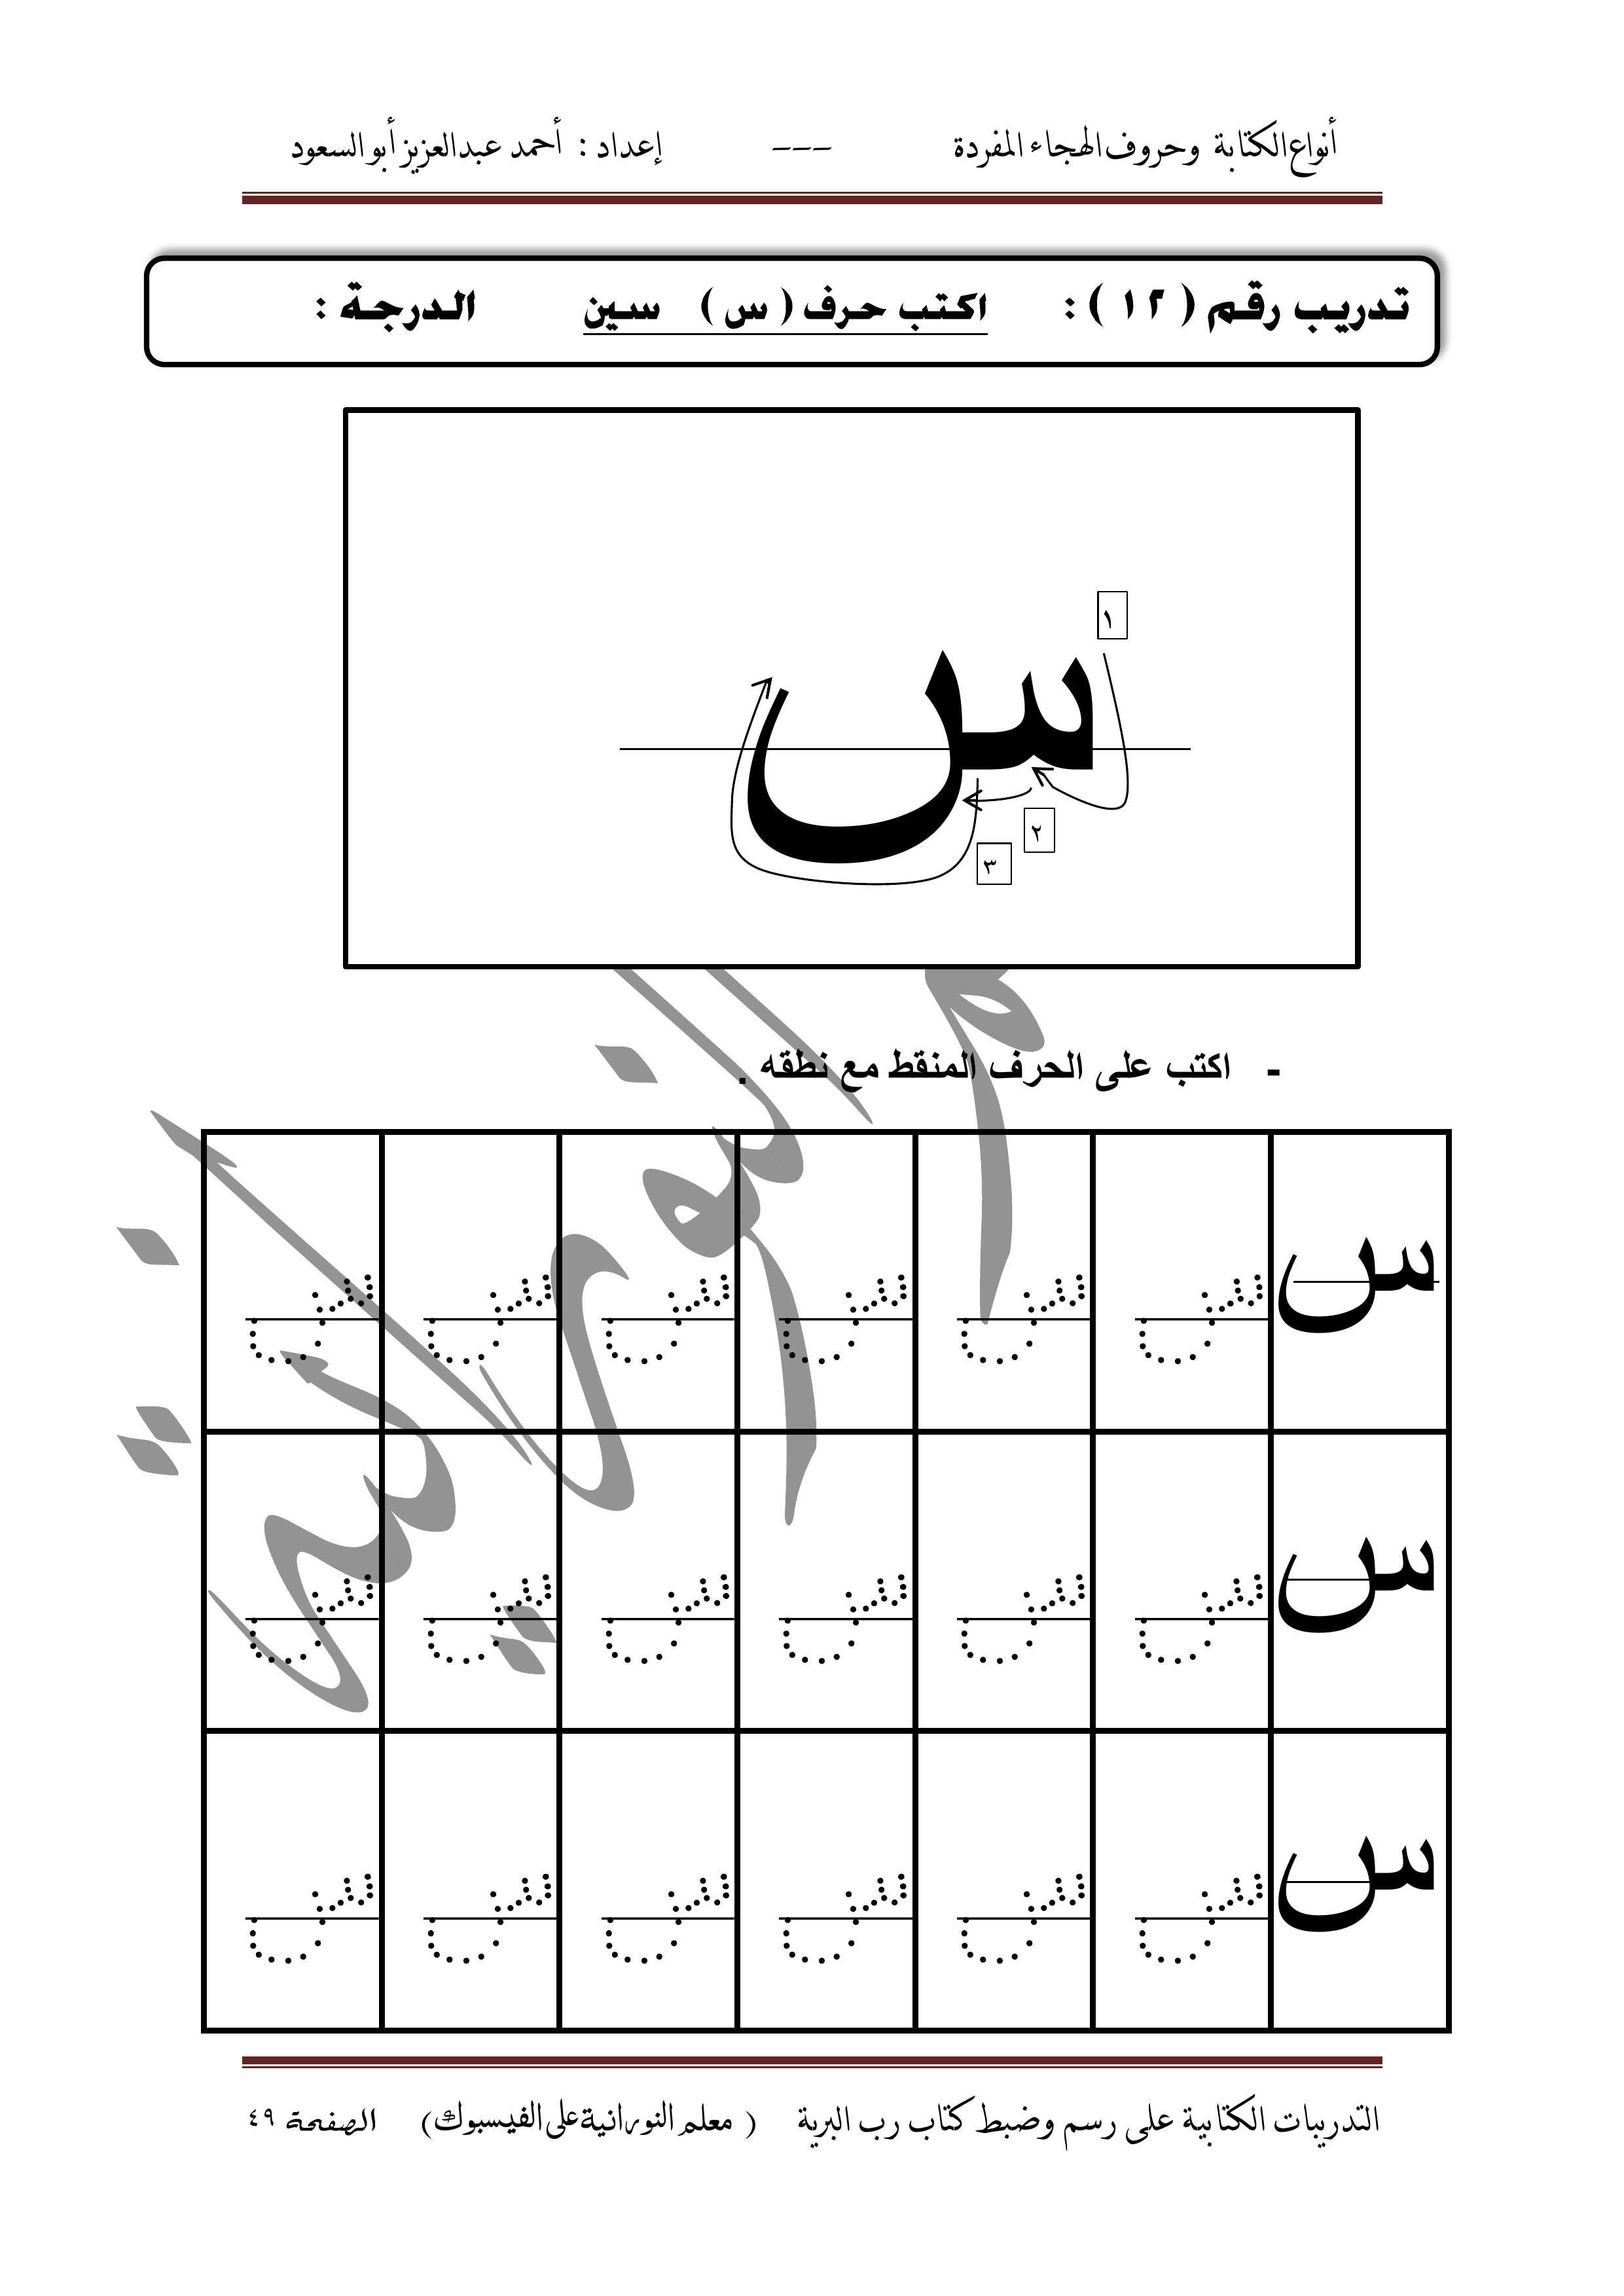 أنواع الكتابة وحروف الهجاء المفردة --- إعداد : أحمد عبدالعزيز أبو السعود
تدريب رقم ( ١٢ ) : اكتب حرف ( س ) سين الدرجة :
١
س
٢
٣
- اكتب على الحرف المنقط مع نطقه .
س س س س س س س
س س س س س س س
س س س س س س س
التدريبات الكتابية على رسم وضبط كتاب رب البرية ( معلم النورانية على الفيسبوك) الصفحة ٤٩